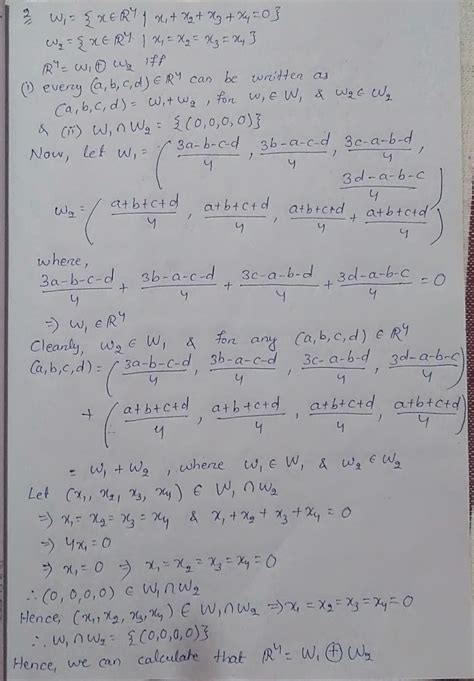 2 W₁ = { x ∈ R⁴ | x₁ + x₂ + x₃ + x₄ = 0 }
W₂ = { x ∈ R⁴ | x₁ = x₂ = x₃ = x₄ }
R⁴ = W₁ ⊕ W₂ iff
(i) every (a,b,c,d) ∈ R⁴ can be written as
(a,b,c,d) = w₁ + w₂ , for w₁ ∈ W₁ & w₂ ∈ W₂
& (ii) W₁ ∩ W₂ = {(0,0,0,0)}
Now, let w₁ = ( (3a-b-c-d)/4 , (3b-a-c-d)/4 , (3c-a-b-d)/4 ,
(3d-a-b-c)/4 )
w₂ = ( (a+b+c+d)/4 , (a+b+c+d)/4 , (a+b+c+d)/4 + (a+b+c+d)/4 )
where,
(3a-b-c-d)/4 + (3b-a-c-d)/4 + (3c-a-b-d)/4 + (3d-a-b-c)/4 = 0
⇒ w₁ ∈ R⁴
Clearly, w₂ ∈ W₁ & for any (a,b,c,d) ∈ R⁴
(a,b,c,d) = ( (3a-b-c-d)/4 , (3b-a-c-d)/4 , (3c-a-b-d)/4 , (3d-a-b-c)/4 )
+ ( (a+b+c+d)/4 , (a+b+c+d)/4 , (a+b+c+d)/4 , (a+b+c+d)/4 )
= w₁ + w₂ , where w₁ ∈ W₁ & w₂ ∈ W₂
Let (x₁, x₂, x₃, x₄) ∈ W₁ ∩ W₂
⇒ x₁ = x₂ = x₃ = x₄ & x₁ + x₂ + x₃ + x₄ = 0
⇒ 4x₁ = 0
⇒ x₁ = 0 ⇒ x₁ = x₂ = x₃ = x₄ = 0
∴ (0,0,0,0) ∈ W₁ ∩ W₂
Hence, (x₁, x₂, x₃, x₄) ∈ W₁ ∩ W₂ ⇒ x₁ = x₂ = x₃ = x₄ = 0
∴ W₁ ∩ W₂ = {(0,0,0,0)}
Hence, we can calculate that R⁴ = W₁ ⊕ W₂